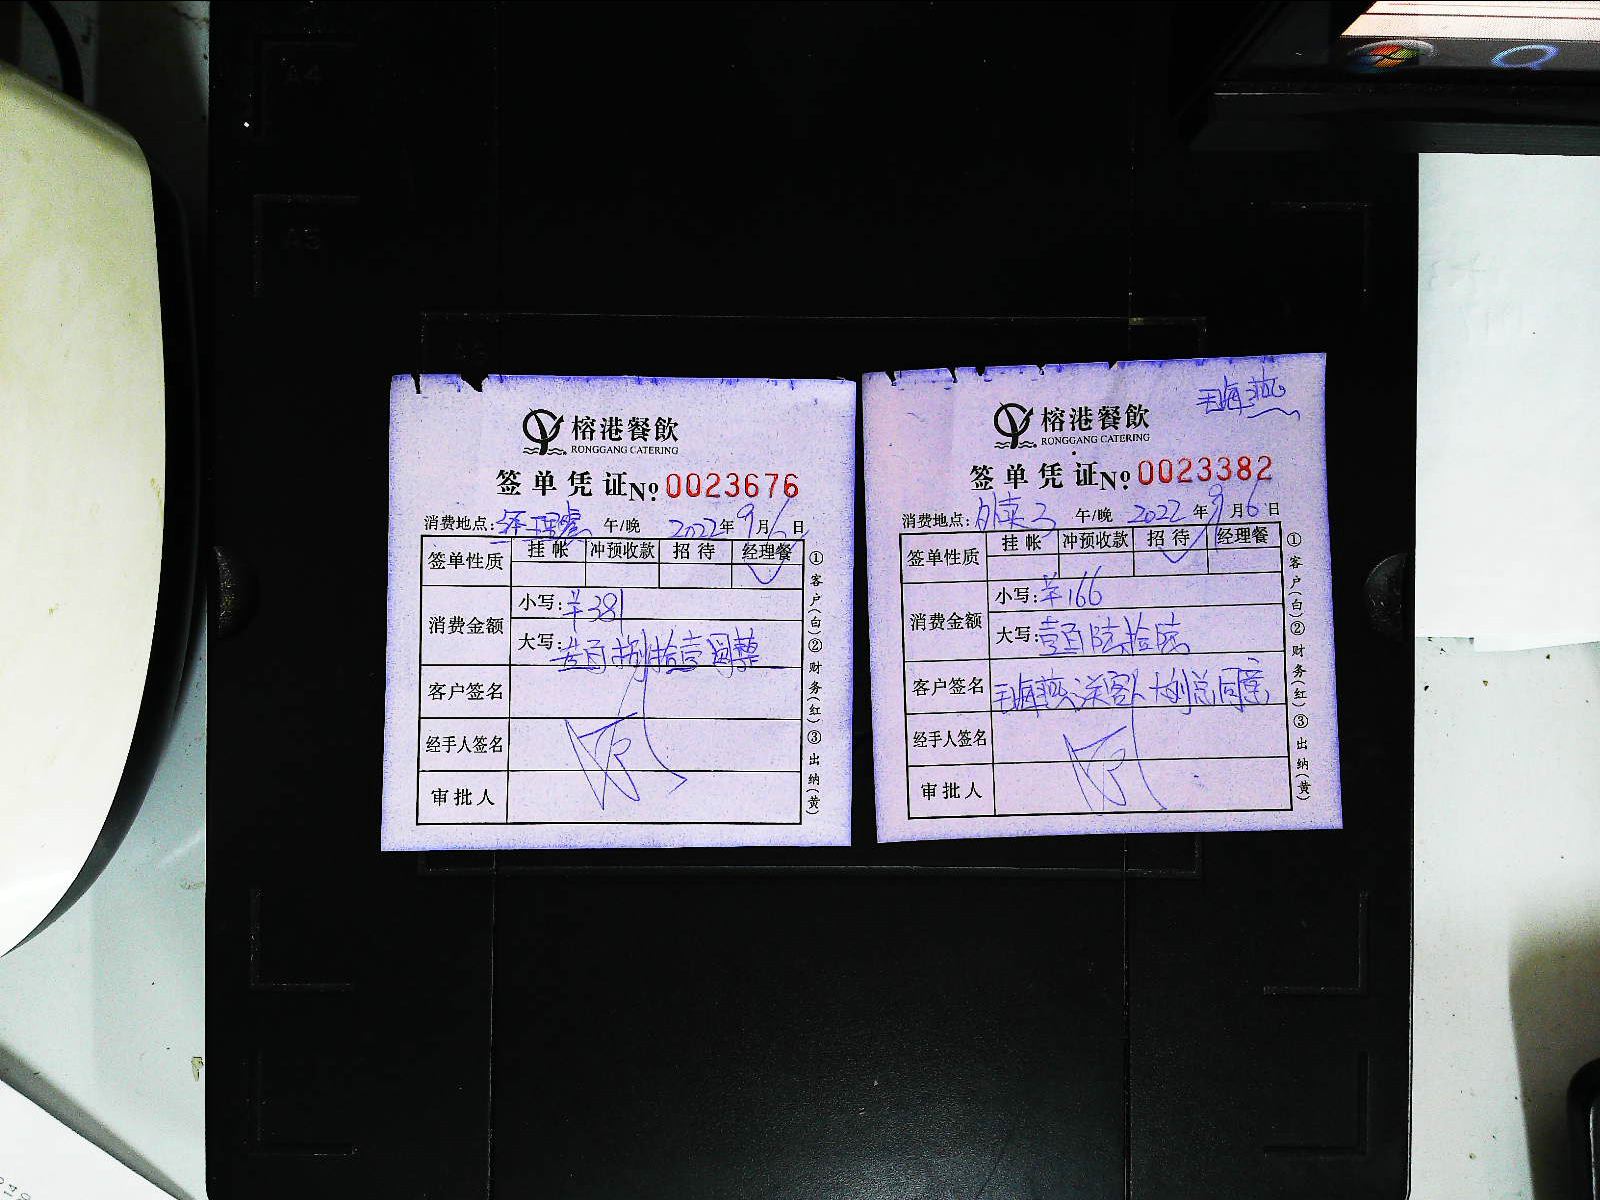 榕港餐飲
RONGGANG CATERING
签单凭证 No 0023676
消费地点: 午/晚 2022年9月6日
签单性质 挂帐 冲预收款 招待 经理餐
消费金额 小写: ¥381
大写: 叁百捌拾壹圆整
客户签名
经手人签名
审批人
①客户(白)②财务(红)③出纳(黄)
榕港餐飲
RONGGANG CATERING
签单凭证 No 0023382
消费地点: 外卖3 午/晚 2022年9月6日
签单性质 挂帐 冲预收款 招待 经理餐
消费金额 小写: ¥166
大写: 壹百陆拾陆
客户签名 送客人 刘总同意
经手人签名
审批人
①客户(白)②财务(红)③出纳(黄)
A4
A5